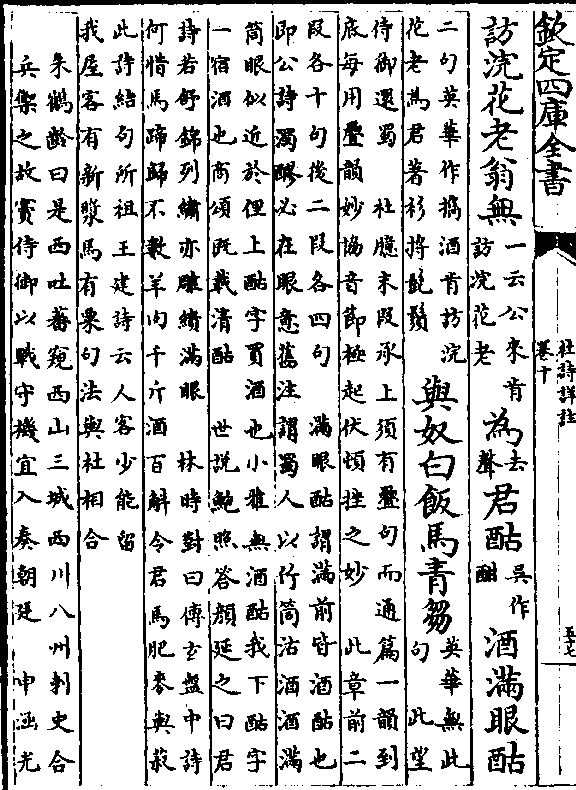 欽定四庫全書
杜詩詳註
卷十
五十七
訪浣花老翁無一云公來肯訪浣花老為去聲君酤吳作酣酒滿眼酤
二句英華作携酒肯訪浣花老為君著衫捋髭鬚與奴白飯馬青芻英華無此句 此望
侍御還蜀 杜臆末段承上須有疊句而通篇一韻到
底每用疊韻妙協音節極起伏頓挫之妙 此章前二
段各十句後二段各四句 滿眼酤謂滿前皆酒酤也
即公詩濁醪必在眼意舊注謂蜀人以竹筒沽酒酒滿
筒眼似近於俚上酤字買酒也小雅無酒酤我下酤字
一宿酒也商頌既載清酤 世說鮑照答顏延之曰君
詩若舒錦列繡亦雕繢滿眼 林時對曰傅玄盤中詩
何惜馬蹄歸不數羊肉千斤酒百斛令君馬肥麥與菽
此詩結句所祖王建詩云人客少能留
我屋客有新漿馬有粟句法與杜相合
朱鶴齡曰是西吐蕃窺西山三城西川八州刺史合
兵禦之故竇侍御以戰守機宜入奏朝廷 申涵光